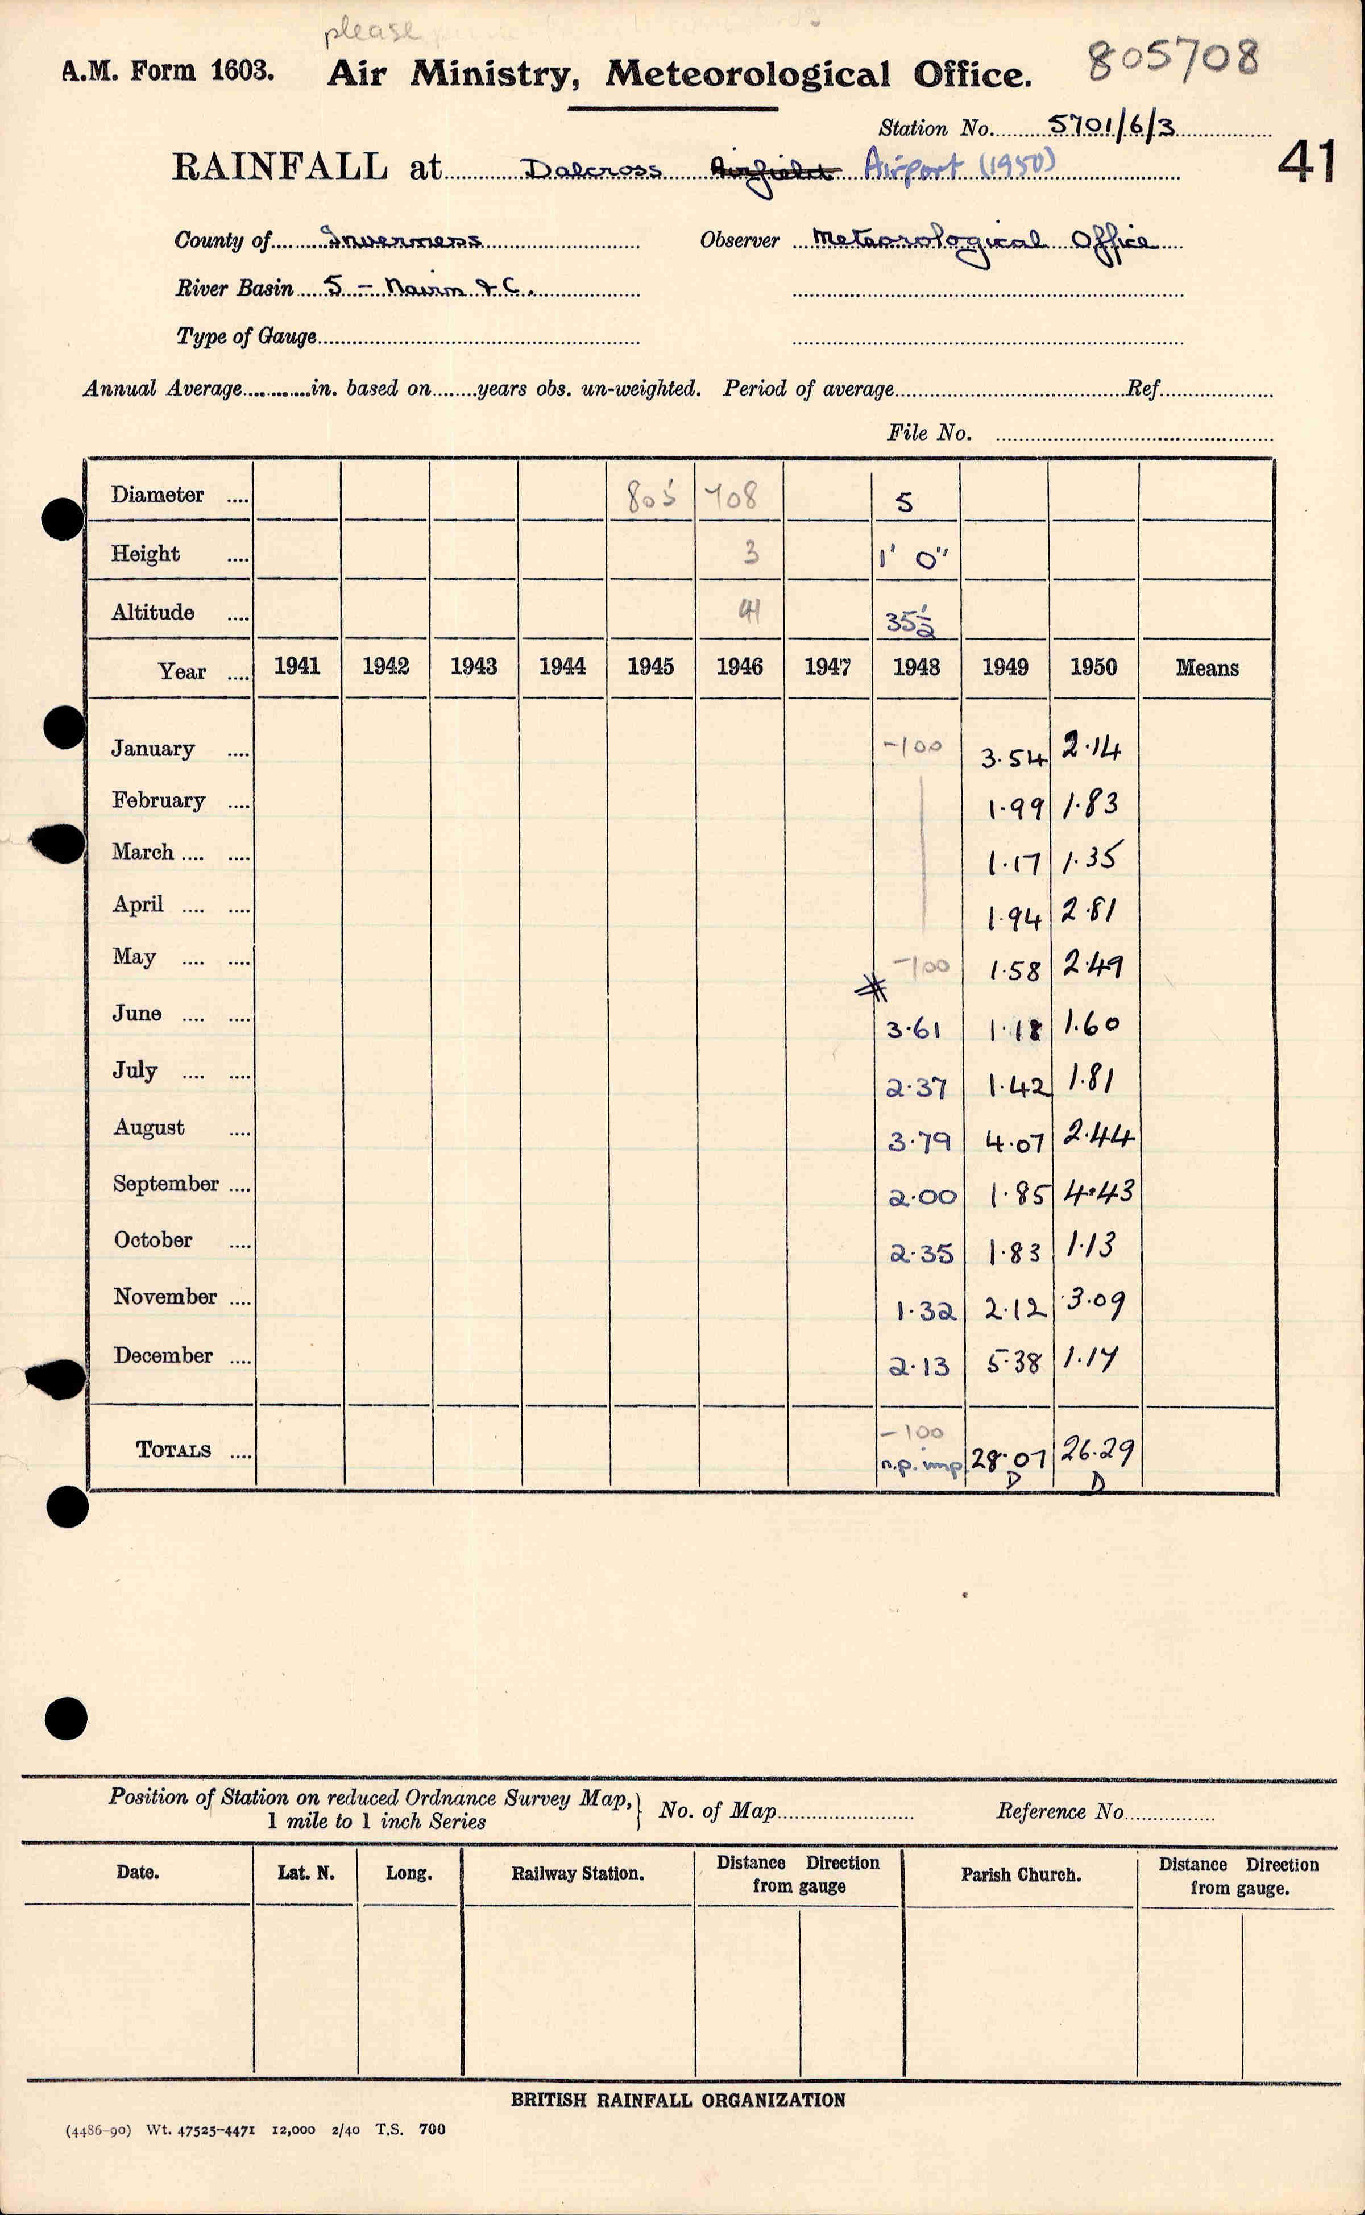 please
A.M. Form 1603. Air Ministry, Meteorological Office. 805708
Station No. 5701/6/3
RAINFALL at Dalcross Airfield Airport (1950) 41
County of Inverness Observer Meteorological Office
River Basin 5 - Nairn & C.
Type of Gauge
Annual Average in. based on years obs. un-weighted. Period of average Ref.
File No.
Diameter .... 805 708 5
Height .... 3 1' 0"
Altitude .... 41 35½
Year .... 1941 1942 1943 1944 1945 1946 1947 1948 1949 1950 Means
January .... -100 3.54 2.14
February .... 1.99 1.83
March .... .... 1.17 1.35
April .... .... 1.94 2.81
May .... .... -100 1.58 2.49
June .... .... 3.61 1.18 1.60
July .... .... 2.37 1.42 1.81
August .... 3.79 4.07 2.44
September .... 2.00 1.85 4.43
October .... 2.35 1.83 1.13
November .... 1.32 2.12 3.09
December .... 2.13 5.38 1.17
-100
TOTALS .... n.p. imp. 28.07 26.29
D D
Position of Station on reduced Ordnance Survey Map,} No. of Map Reference No
1 mile to 1 inch Series
Date. Lat. N. Long. Railway Station. Distance Direction from gauge Parish Church. Distance Direction from gauge.
BRITISH RAINFALL ORGANIZATION
(4486-90) Wt. 47525-4471 12,000 2/40 T.S. 700